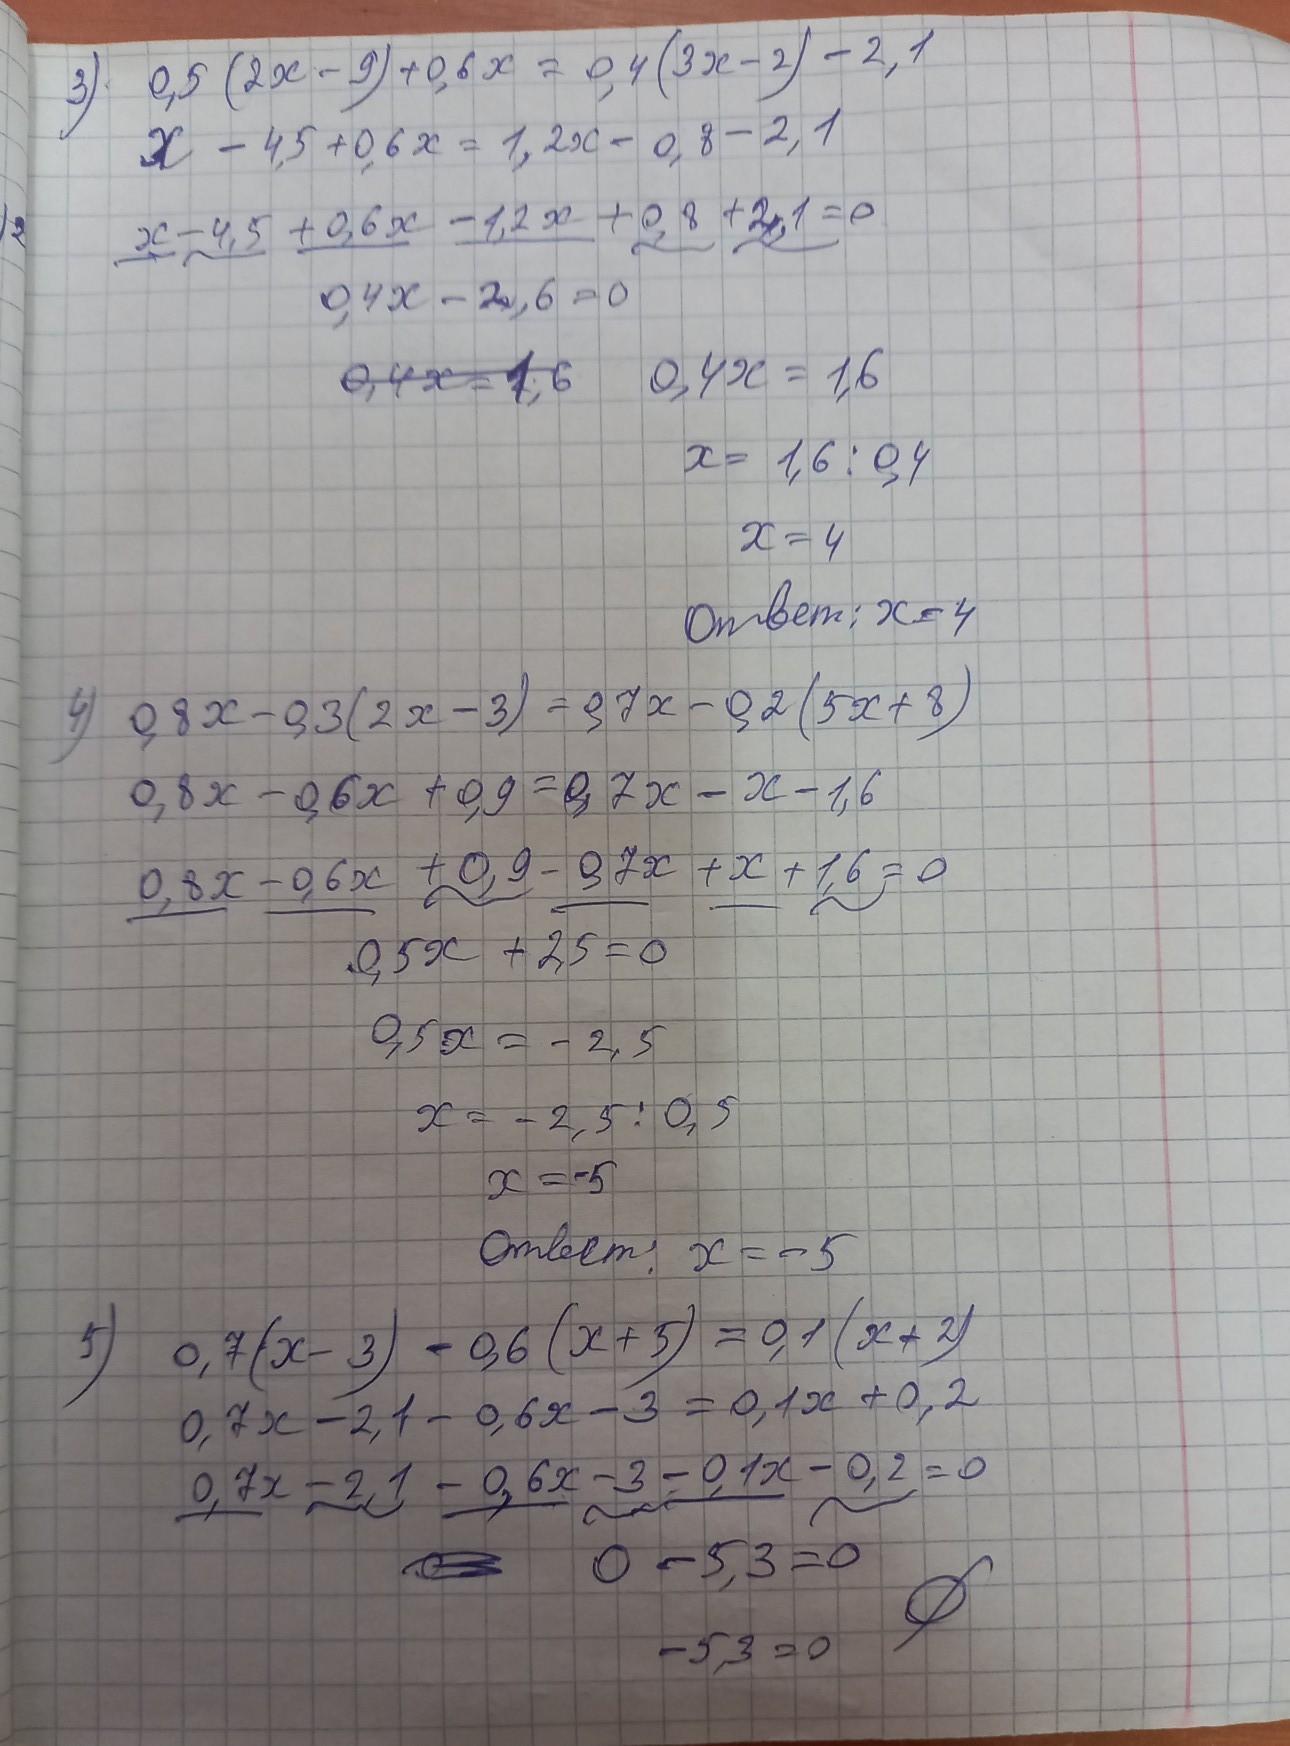 3) 0,5(2x-9)+0,6x=0,4(3x-2)-2,1
x-4,5+0,6x=1,2x-0,8-2,1
x-4,5+0,6x-1,2x+0,8+2,1=0
0,4x-2,6=0
0,4x=1,6 0,4x=1,6
x=1,6:0,4
x=4
Ответ: x=4
4) 0,8x-0,3(2x-3)=0,7x-0,2(5x+8)
0,8x-0,6x+0,9=0,7x-x-1,6
0,8x-0,6x+0,9-0,7x+x+1,6=0
0,5x+2,5=0
0,5x=-2,5
x=-2,5:0,5
x=-5
Ответ: x=-5
5) 0,7(x-3)-0,6(x+5)=0,1(x+2)
0,7x-2,1-0,6x-3=0,1x+0,2
0,7x-2,1-0,6x-3-0,1x-0,2=0
0-5,3=0
∅
-5,3=0